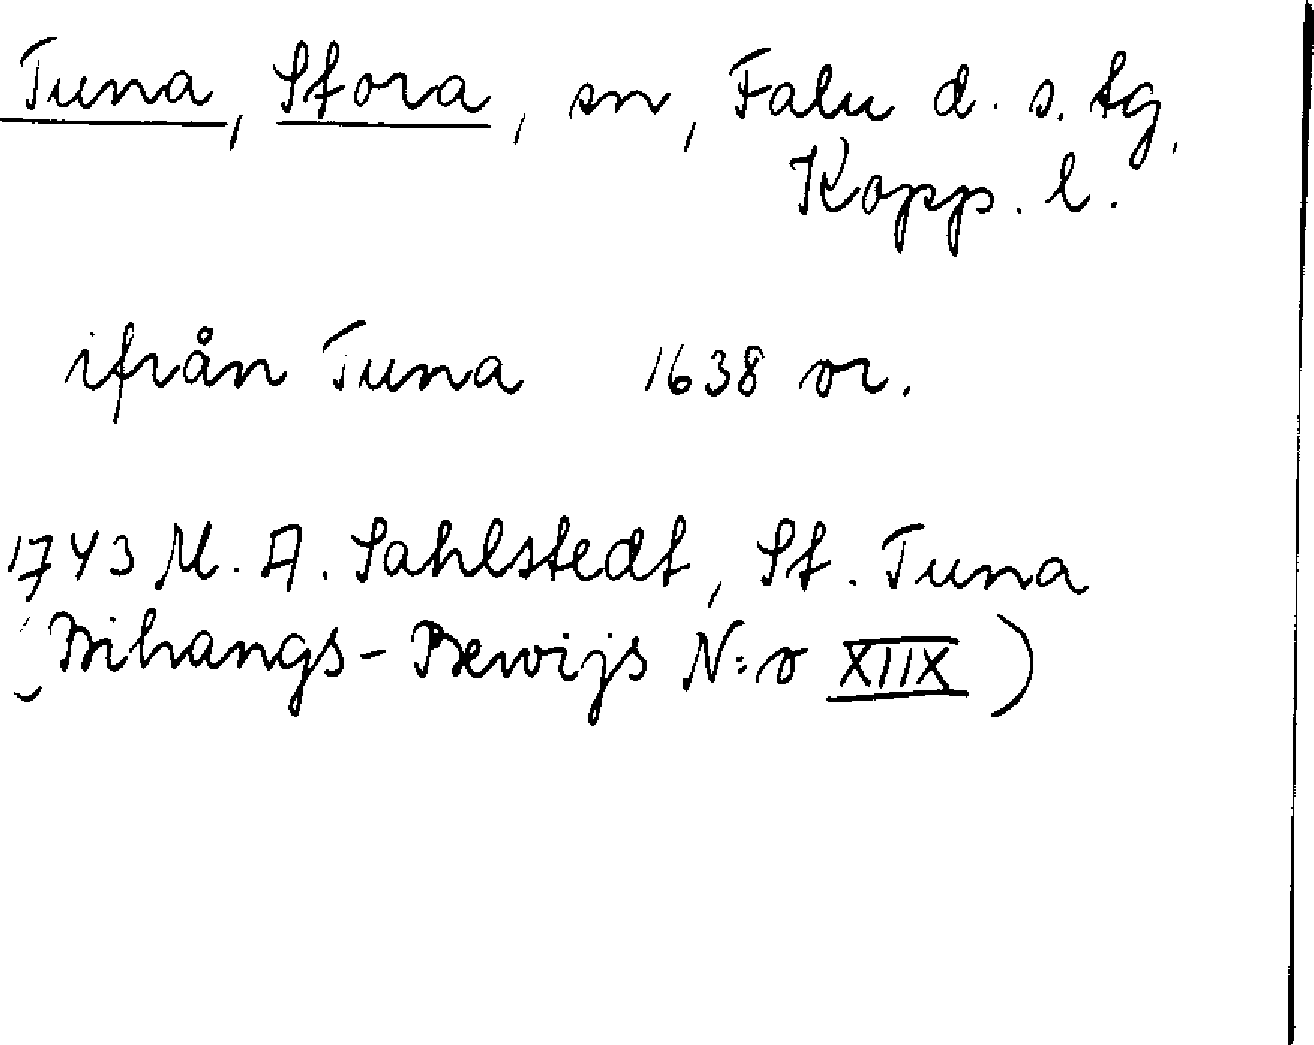 Tuna, Stora, sn, Falu d. s. tg,
Kopp. l.
ifrån Tuna 1638 or.
1743 M. A. Sahlstedt, St. Tuna
(Bihangs-Bewijs N:o XIIX)